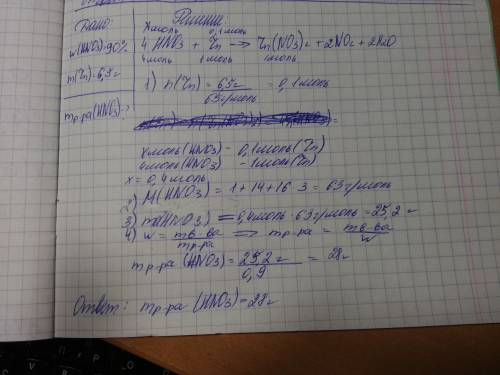 Дано:
w(HNO3)=90%
m(Zn)=6,5г
mр-ра(HNO3)-?
Решение:
xмоль 0,1моль
4HNO3 + Zn → Zn(NO3)2 + 2NO2 + 2H2O
4моль 1моль 1моль
1) n(Zn) = 6,5г / 65г/моль = 0,1моль
xмоль(HNO3) - 0,1моль(Zn)
4моль(HNO3) - 1моль(Zn)
x = 0,4моль
2) M(HNO3) = 1+14+16·3 = 63г/моль
3) m(HNO3) = 0,4моль·63г/моль = 25,2г
4) w = mв-ва / mр-ра ⇒ mр-ра = mв-ва / w
mр-ра(HNO3) = 25,2г / 0,9 = 28г
Ответ: mр-ра(HNO3) = 28г